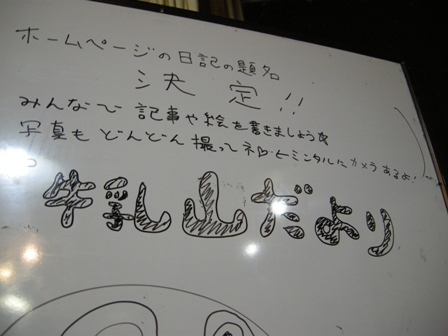 ホームページの日記の題名
決定!!
みんなで記事や絵を書きましょう
写真もどんどん撮ってネ
カメラあるよ!
牛乳山だより